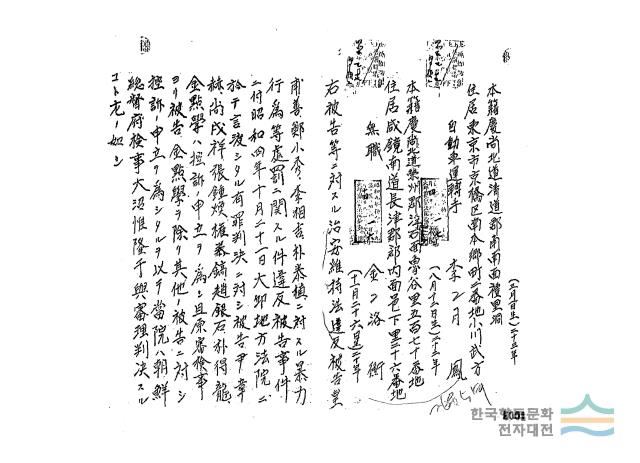 本籍慶尚北道清道郡南南面積里洞
住居東京市京橋区南本郷町二番地小川武方
自動車運轉手
李月鳳
(八月十三日生)二十三年
本籍慶尚北道榮州郡浮石面魯谷里五百七十番地
住居咸鏡南道長津郡郡内面邑下里三十六番地
無職
金洛衡
(十一月二十六日生)二十年
右被告等ニ対スル治安維持法違反被告並
甫善鄭小秀李相吉朴泰植ニ対スル暴力
行為等處罰ニ関スル件違反被告事件
ニ付昭和四年十月二十一日大邱地方法院ニ
於テ言渡シタル有罪判決ニ対シ被告申章
赫尚戊祥張鍾煥權泰鎬趙銀石朴得龍
金點學ハ控訴ノ申立ヲ為シ且原審檢事
ヨリ被告金點學ヲ除ク其他ノ被告ニ対シ
控訴ノ申立ヲ為シタルヲ以テ當院ハ朝鮮
總督府檢事大沼惟隆干與審理判決スル
コト左ノ如シ
한국학문화
전자대전